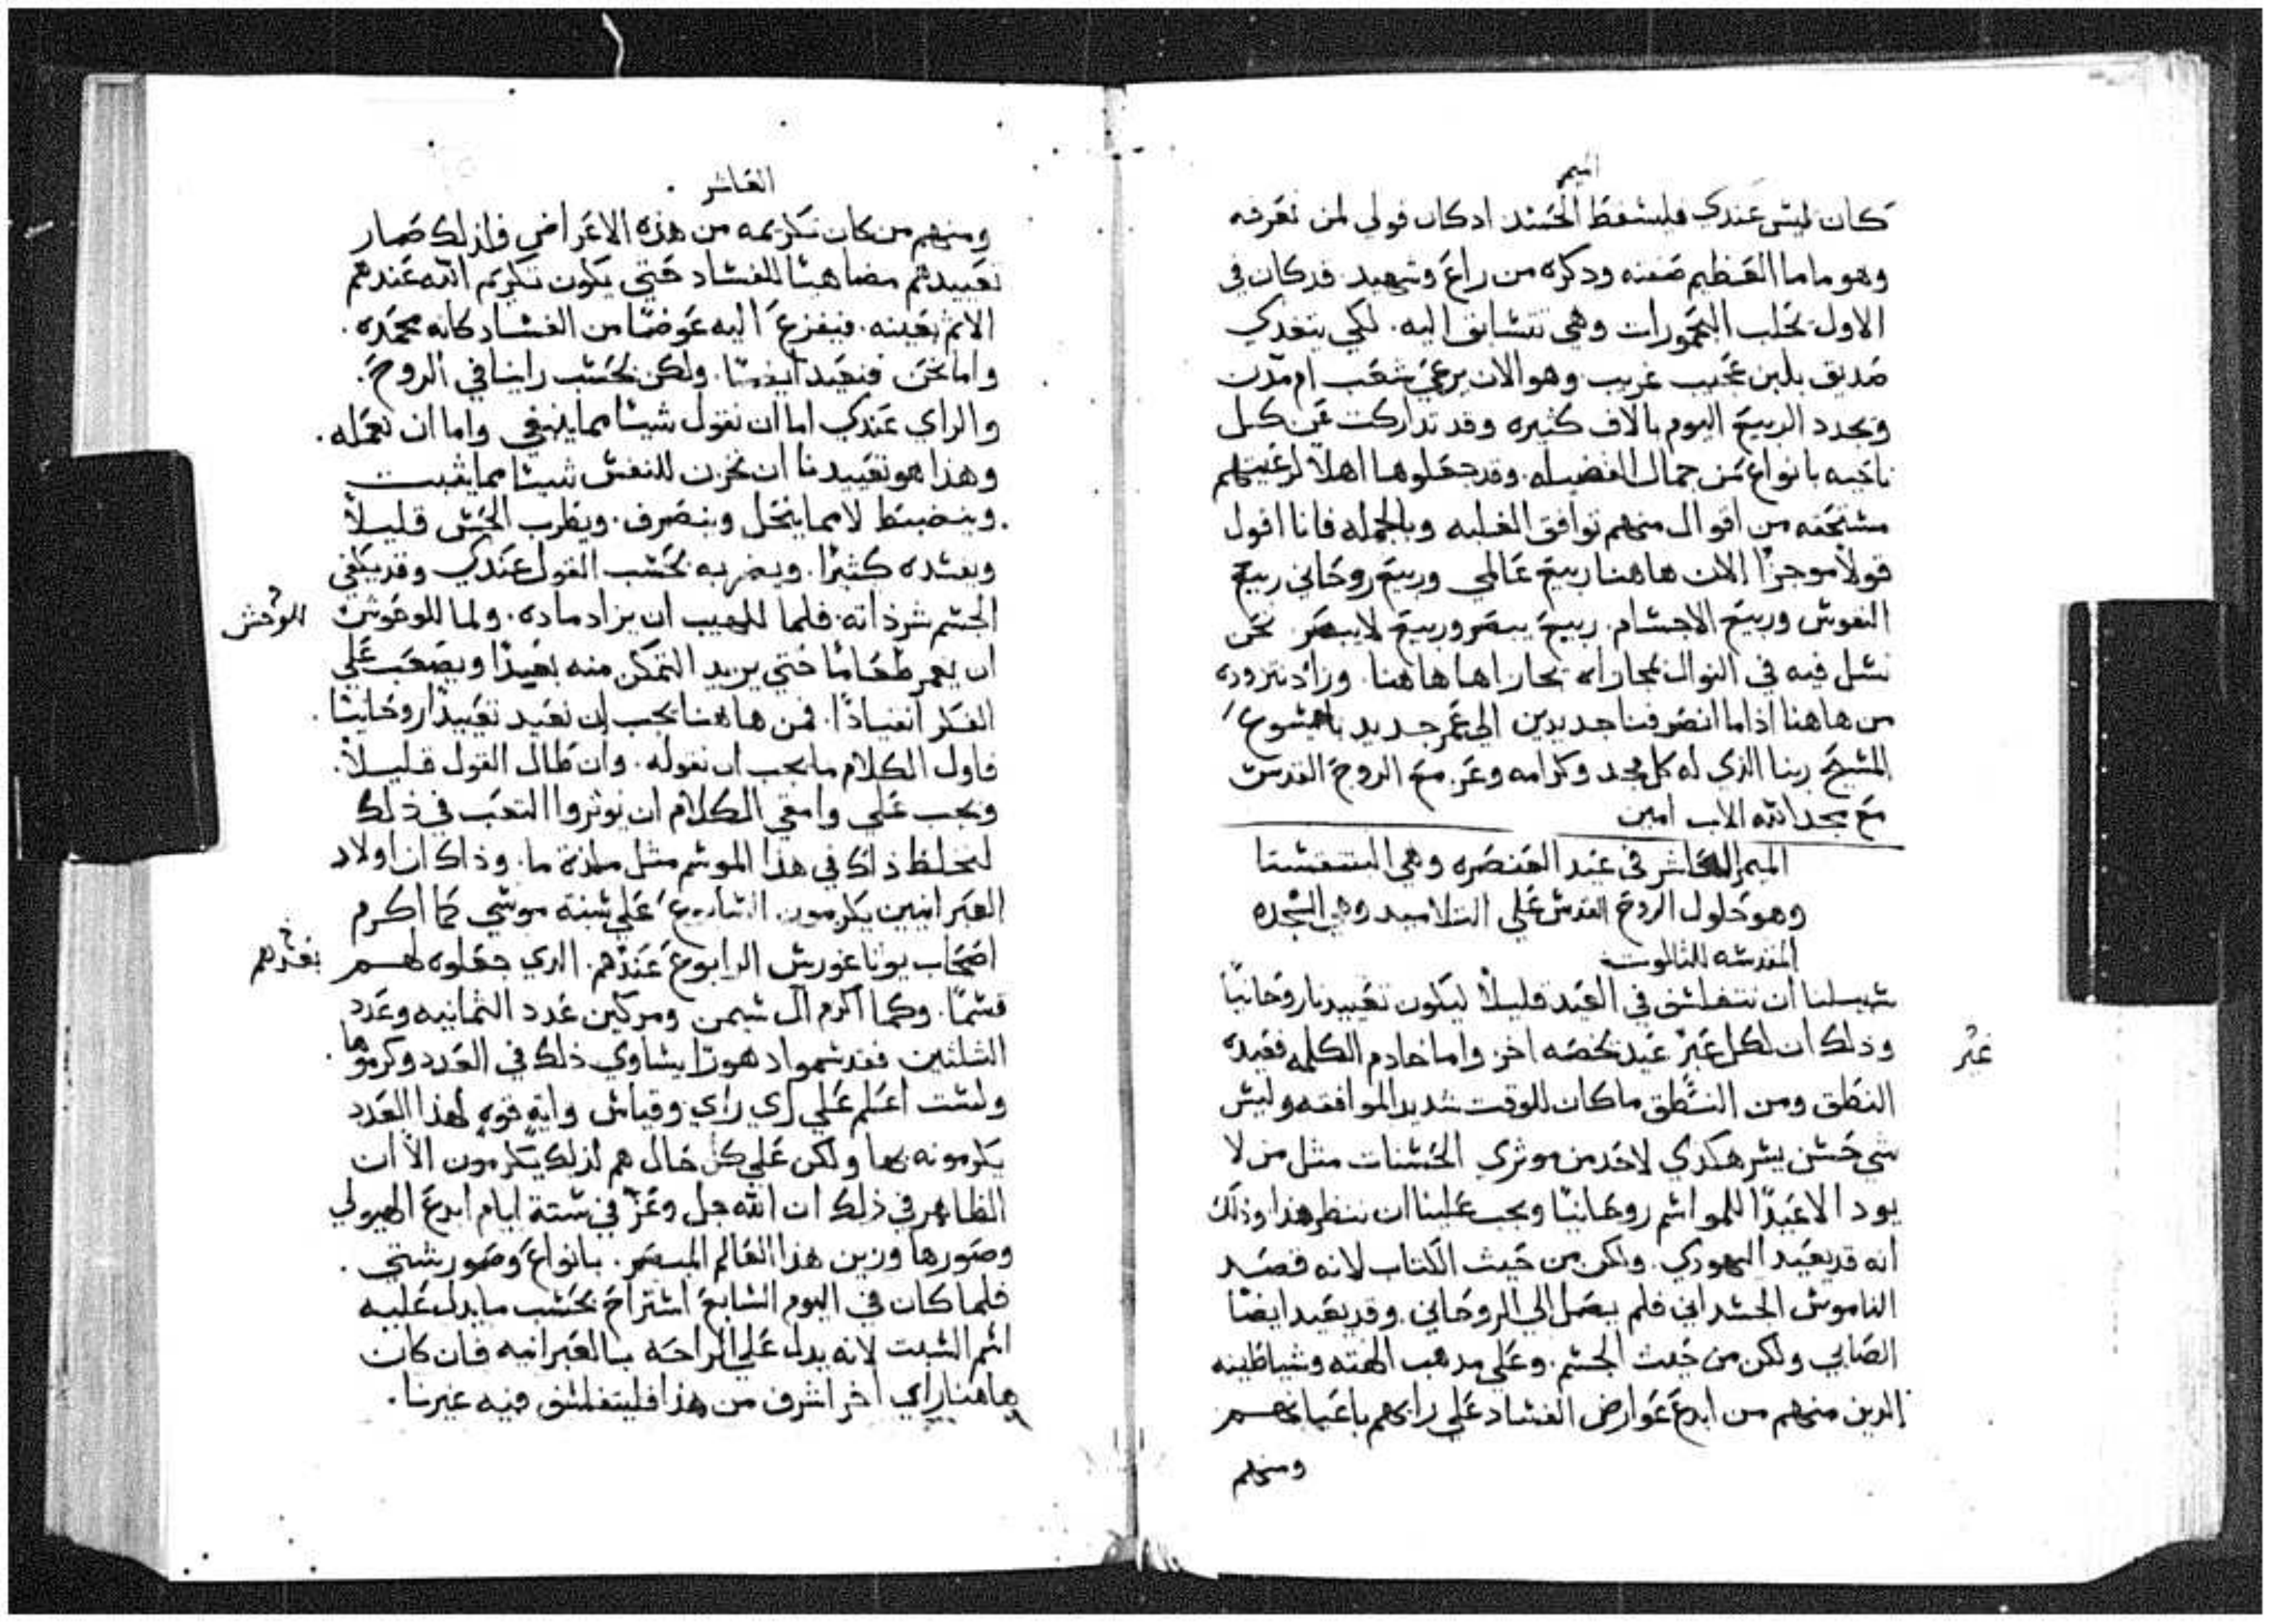 الميمر
كان ليس عندي فليسقط الحسد اد كان قولي لمن نعرفه
وهو ماما العظيم صفته ودكره من راع وشهيد. قد كان في
الاول يحلب اليحمورات وهي تتسابق اليه. لكي يتغدي
صديق بلبن عجيب غريب. وهو الان يرعي شعب ام مدن
ويجدد الربيع اليوم بالاف كثيره وقد تداركت من كل
ناحيه بانواع من جمال الفضيله. وقد جعلوها اهلا لرعيتهم
مستحقه من اقوال منهم توافق الغلبه وبالجمله فانا اقول
قولاً موجزاً الان هاهنا ربيع عالمي وربيع روحاني ربيع
النفوس وربيع الاجسام. ربيع يبصر وربيع لا يبصر. نحن
في النوال هاهنا. وزاد نتزوده
من هاهنا اذا ما انصرفنا جديدين الي عمر جديد بايسوع
المسيح ربنا الذي له كل مجد وكرامه وعز. مع الروح القدس
مع مجد الله الاب امين
الميمر العاشر في عيد العنصره وهي البنتقسطا
وهو حلول الروح القدس علي التلاميد وهي السجده
المقدسه للثالوث
سبيلنا ان نتفلسف في العيد قليلاً ليكون تعييدنا روحانياً
وذلك ان لكل عبر عيد يخصه اخر واما خادم الكلمه فعيده
غير
النطق ومن النطق ما كان للوقت شديد الموافقه وليس
شي حسن يسر هكدي لاحد من موثري الحسنات مثل من لا
يود الا عيداً للمواسم روحانيا ويجب علينا ان ننظر هذا وذلك
انه قد يعيد اليهودي. ولكن من حيث الكتاب لانه قصد
الناموس الجسداني فلم يصل الي الروحاني. وقد يعيد ايضا
الصابي ولكن من حيث الجسم. وعلي مدهب الهته وشياطينه
الدين منهم من ابدع عوارض الفساد علي رايهم باعيانهم
ومنهم
العاشر
ومنهم من كان تكريمه من هذه الاعراض فلذلك صار
تعييدهم مضاهيا للفساد حتي يكون تكريم الله عندهم
الاثم بعينه. فيفزع اليه عوضا من الفساد كانه محمده.
واما نحن فنعيد ايضا. ولكن بحسب راينا في الروح.
والراي عندي اما ان نقول شيئا مما ينبغي واما ان نعمله.
وهذا هو تعييدنا ان نخزن للنفس شيئا مما يثبت
وينضبط لا مما ينحل وينصرف. ويطرب الحس قليلاً
ويفسده كثيراً. ويضر به بحسب القول عندي وقد يكفي
الجسم شر ذاته. فلما للهيب ان يزاد ماده. ولما للوحوش
للوحش
ان يعمر طعاما حتي يريد التمكن منه بعيداً ويصعب علي
الفكر انقياداً. فمن هاهنا يجب ان نعيد تعييداً روحانيا.
فاول الكلام ما يجب ان نقوله. وان طال القول قليلاً.
ويجب علي وامقي الكلام ان يوثروا التعب في ذلك
لنخلط ذاك في هذا الموسم مثل ملذة ما. وذاك ان اولاد
العبرانيين يكرمون السابوع علي سنة موسي كما اكرم
اصحاب بوثاغورس الرابوع عندهم. الدي جعلوه لهم
بعدهم
قسما. وكما اكرم ال سيمن ومركين عدد الثمانيه وعدد
الثلثين فقد سموا دهورا يساوي ذلك في العدد وكرموها.
ولست اعلم علي اي راي وقياس وايه قوه لهذا العدد
يكرمونه بها ولكن علي كل حال هم لذلك يكرمون الا ان
الظاهر في ذلك ان الله جل وعز في ستة ايام ابدع الهيولي
وصورها وزين هذا العالم المبصر. بانواع وصور شتي.
فلما كان في اليوم السابع استراح بحسب ما يدل عليه
اسم السبت لانه يدل علي الراحه بالعبرانيه فان كان
هاهنا راي اخر اشرف من هذا فليتفلسف فيه غيرنا.